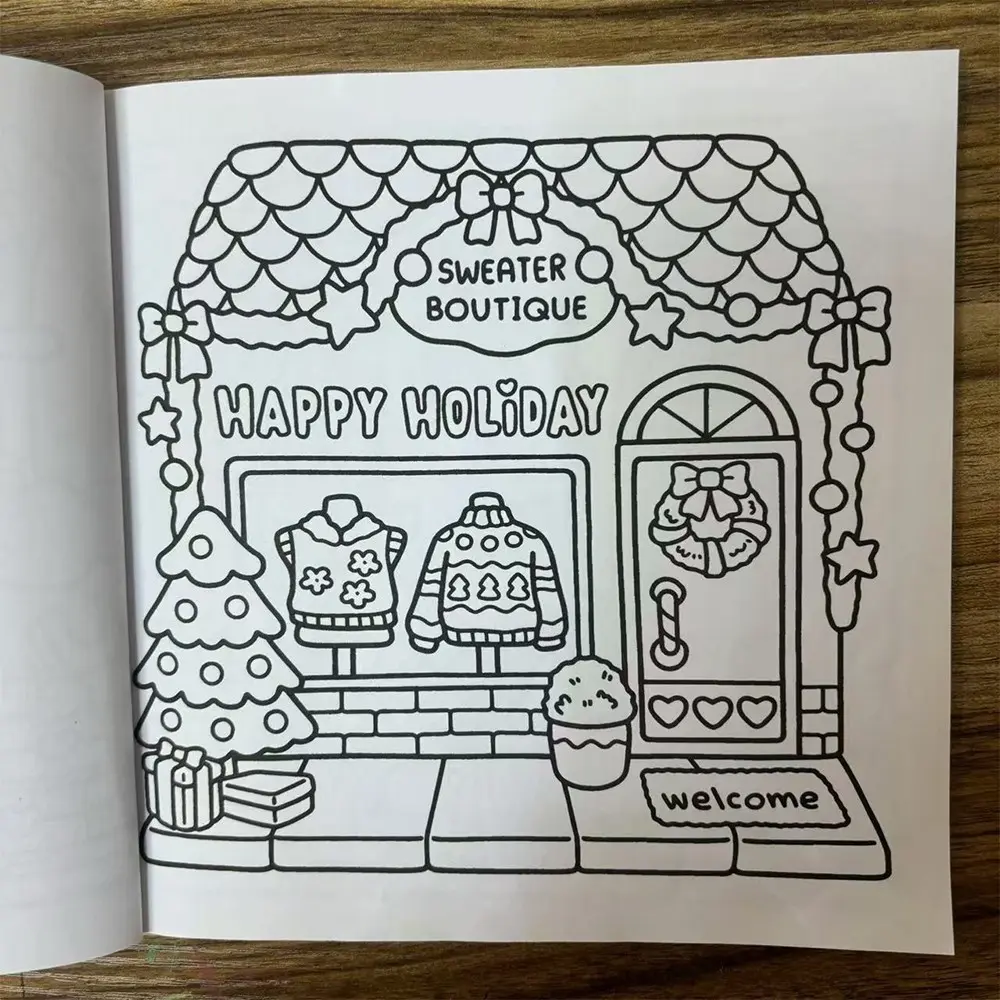 SWEATER
BOUTIQUE
HAPPY HOLiDAY
welcome